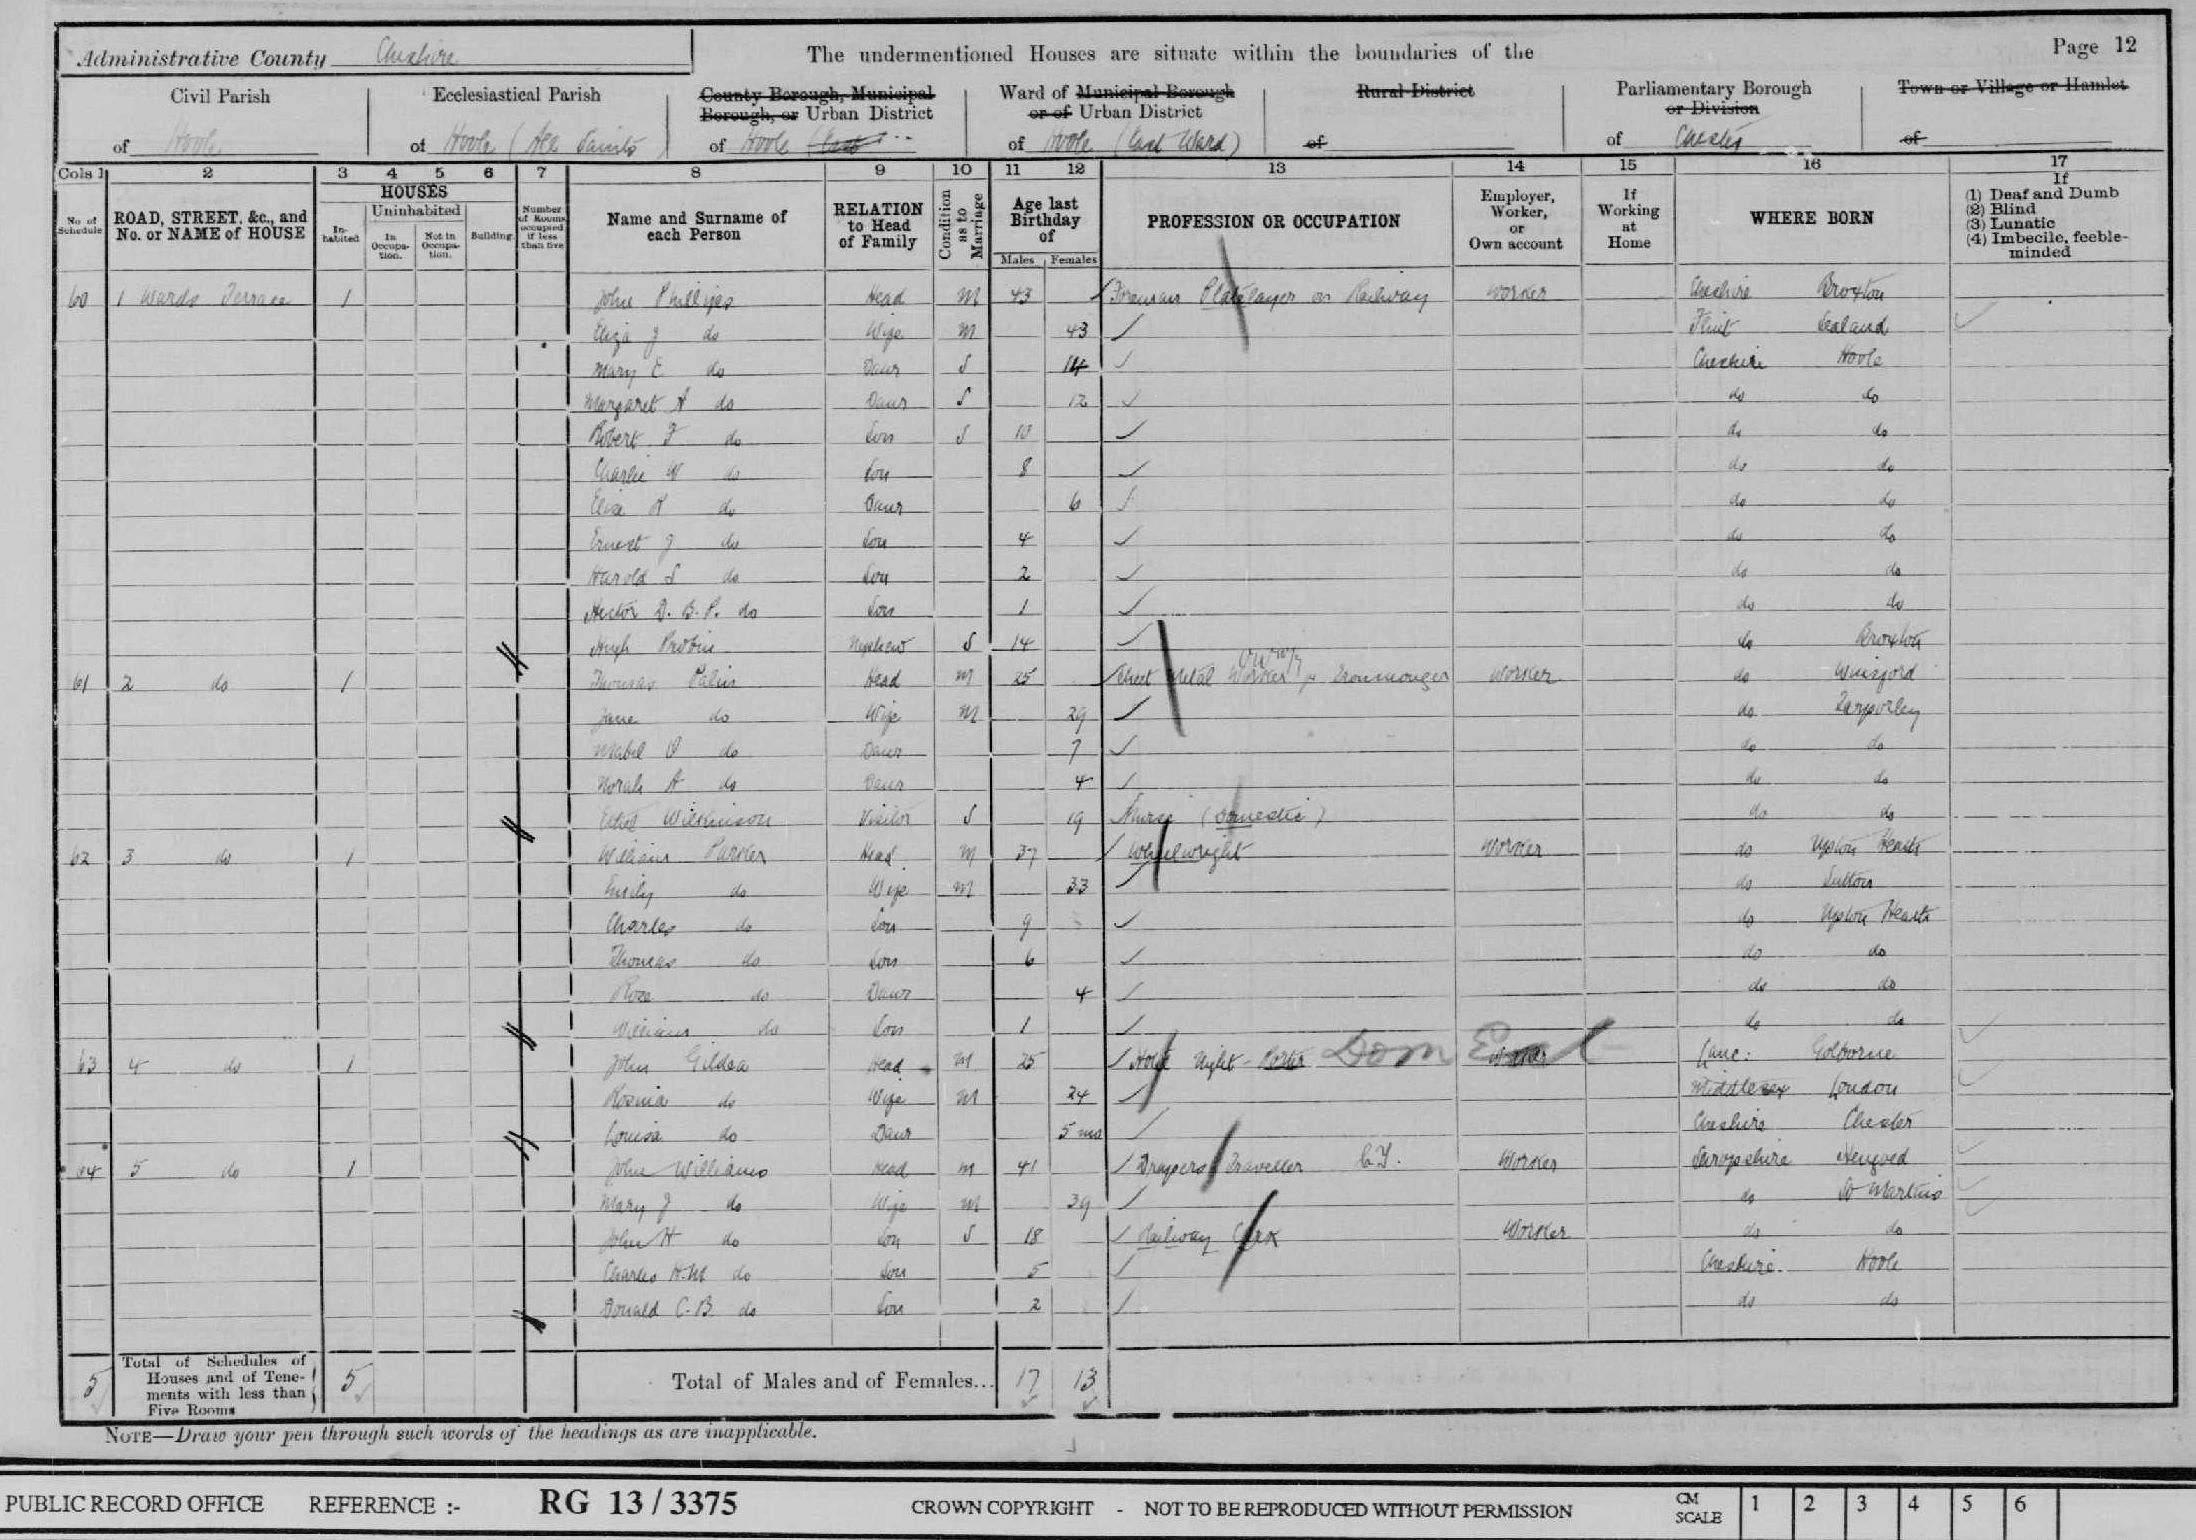 Administrative County Cheshire The undermentioned Houses are situate within the boundaries of the Page 12
Civil Parish Ecclesiastical Parish County Borough, Municipal Borough, or Urban District Ward of Municipal Borough or of Urban District Rural District Parliamentary Borough or Division Town or Village or Hamlet
of Hoole of Hoole (All Saints of Hoole of Hoole (East Ward) of of Chester of
Cols 1 2 3 4 5 6 7 8 9 10 11 12 13 14 15 16 17
No. of Schedule ROAD, STREET, &c., and No. or NAME of HOUSE HOUSES Inhabited Uninhabited In Occupation. Not in Occupation. Building. Number of Rooms occupied if less than five Name and Surname of each Person RELATION to Head of Family Condition as to Marriage Age last Birthday of Males Females PROFESSION OR OCCUPATION Employer, Worker, or Own account If Working at Home WHERE BORN If (1) Deaf and Dumb (2) Blind (3) Lunatic (4) Imbecile, feeble-minded
60 1 Wards Terrace 1 John Phillips Head M 43 Foreman Platelayer on Railway Worker Cheshire Broxton
Eliza J do Wife M 43 Flint Sealand
Mary E do Daur S 14 Cheshire Hoole
Margaret A do Daur S 12 do do
Robert F do Son S 10 do do
Charlie W do Son 8 do do
Eliza R do Daur 6 do do
Ernest J do Son 4 do do
Harold S do Son 2 do do
Hector D. B. P. do Son 1 do do
Hugh Probin Nephew S 14 do Broxton
61 2 do 1 Thomas Palin Head M 25 Sheet Metal Worker Ironmonger Worker do Winsford
Jane do Wife M 29 do Tarporley
Mabel O do Daur 7 do do
Norah A do Daur 4 do do
Ethel Wilkinson Visitor S 19 Nurse (Domestic) do do
62 3 do 1 William Parker Head M 37 Wheelwright Worker do Upton Heath
Emily do Wife M 33 do Sutton
Charles do Son 9 do Upton Heath
Thomas do Son 6 do do
Rose do Daur 4 do do
William do Son 1 do do
63 4 do 1 John Gildea Head M 25 Hotel Night-Porter Dom Worker Lanc: Golborne
Rosina do Wife M 24 Middlesex London
Louisa do Daur 5 mo Cheshire Chester
64 5 do 1 John Williams Head M 41 Drapers Traveller C.T. Worker Shropshire Hengoed
Mary J do Wife M 39 do St Martins
John H do Son S 18 Railway Clerk Worker do do
Charles H.M do Son 5 Cheshire Hoole
Donald C.B do Son 2 do do
5 Total of Schedules of Houses and of Tenements with less than Five Rooms 5 Total of Males and of Females... 17 13
NOTE—Draw your pen through such words of the headings as are inapplicable.
PUBLIC RECORD OFFICE REFERENCE :- RG 13 / 3375 CROWN COPYRIGHT - NOT TO BE REPRODUCED WITHOUT PERMISSION CM SCALE 1 2 3 4 5 6